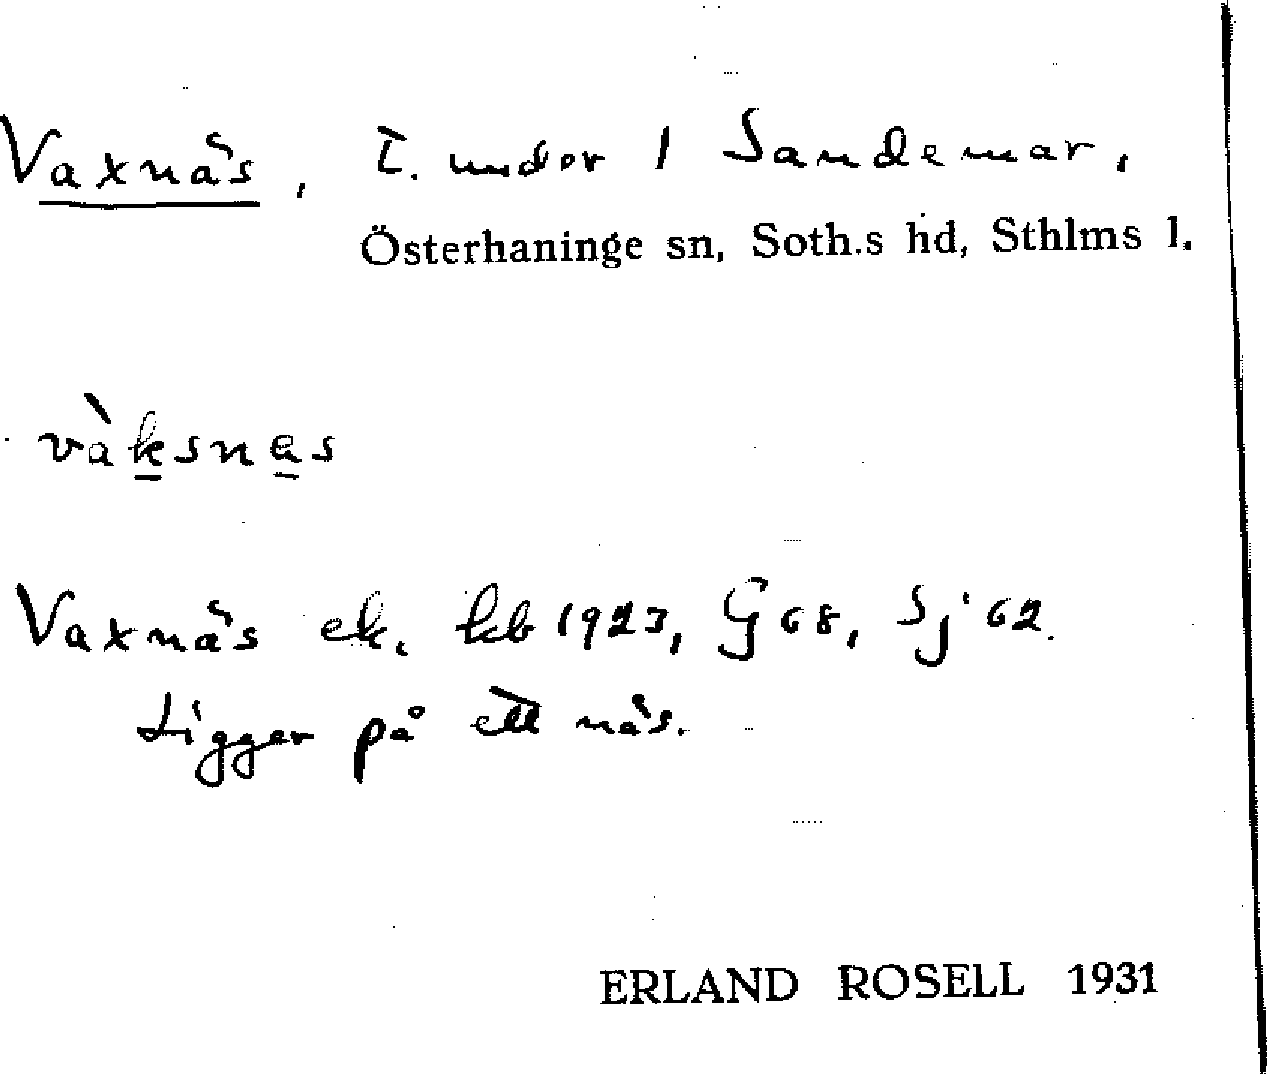 Vaxnäs, t. under 1 Sandemar,
Österhaninge sn, Soth.s hd, Sthlms l.
vàksnäs
Vaxnäs ek. kb 1923, G 68, Sj 62.
Ligger på ett näs.
ERLAND ROSELL 1931